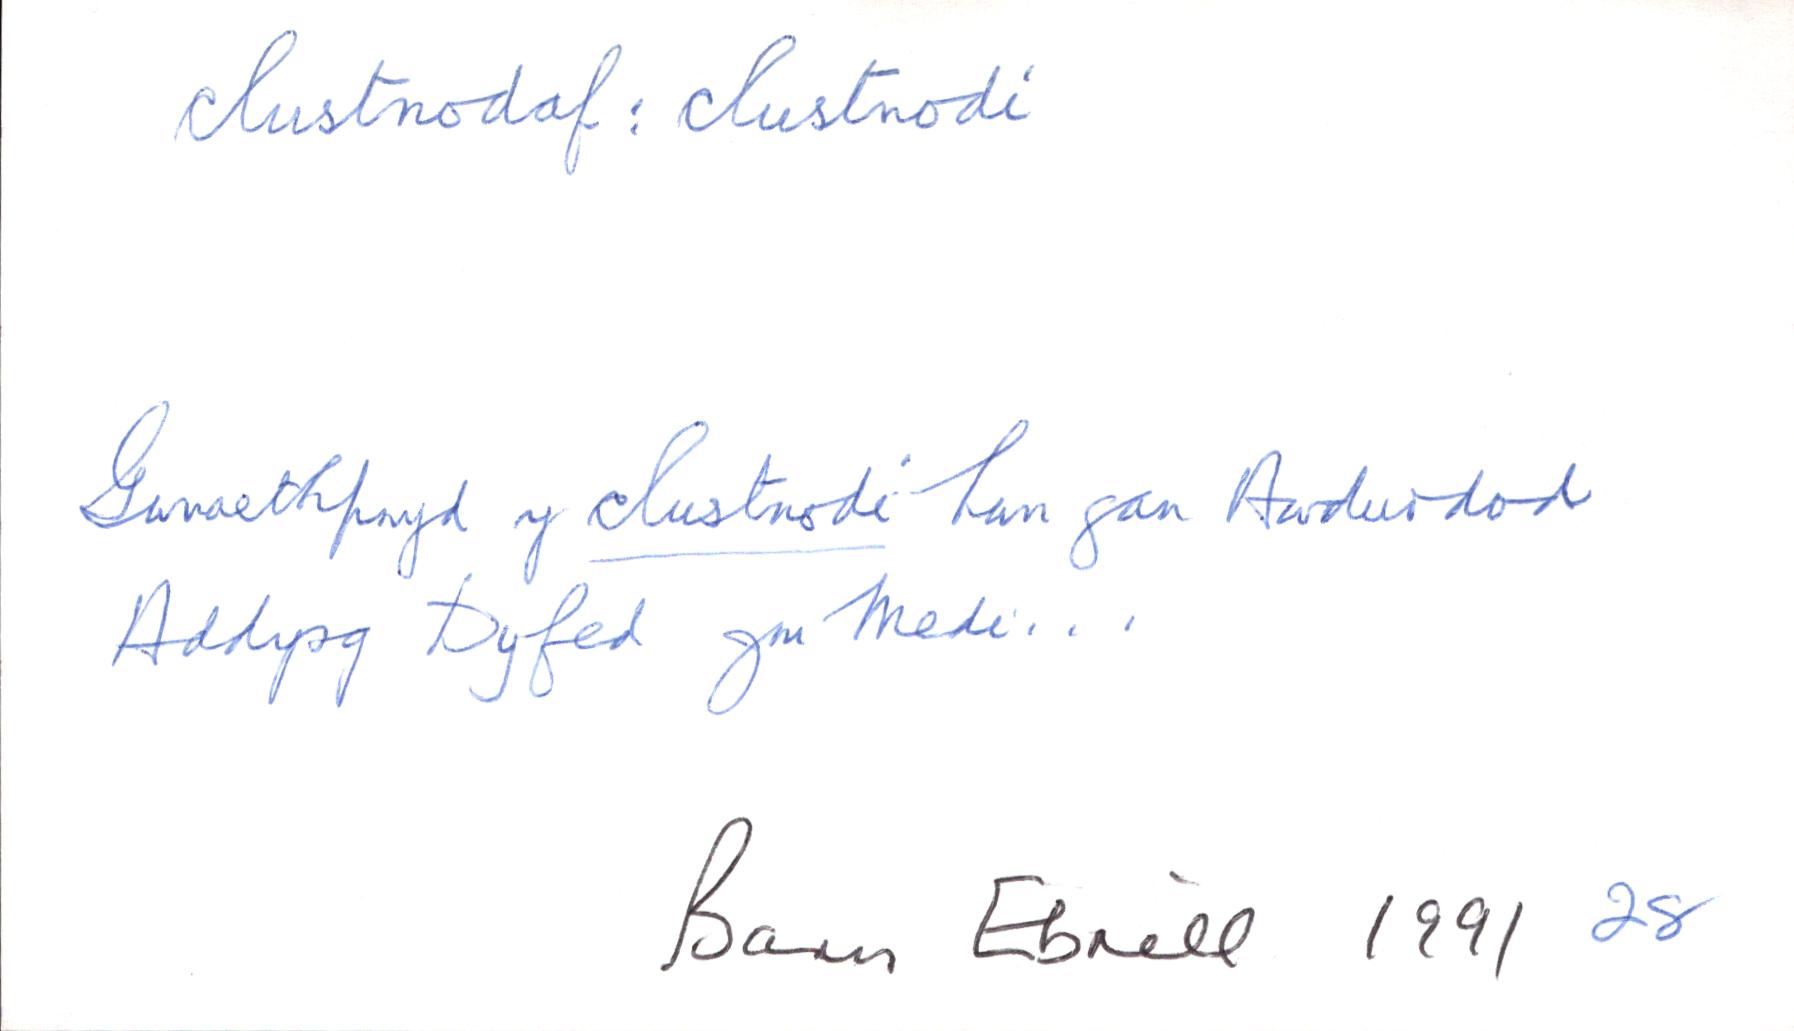 clustnodaf: clustnodi
Gwnaethpwyd y clustnodi hwn gan Awdurdod
Addysg Dyfed ym Medi...
Barn Ebrill 1991 28